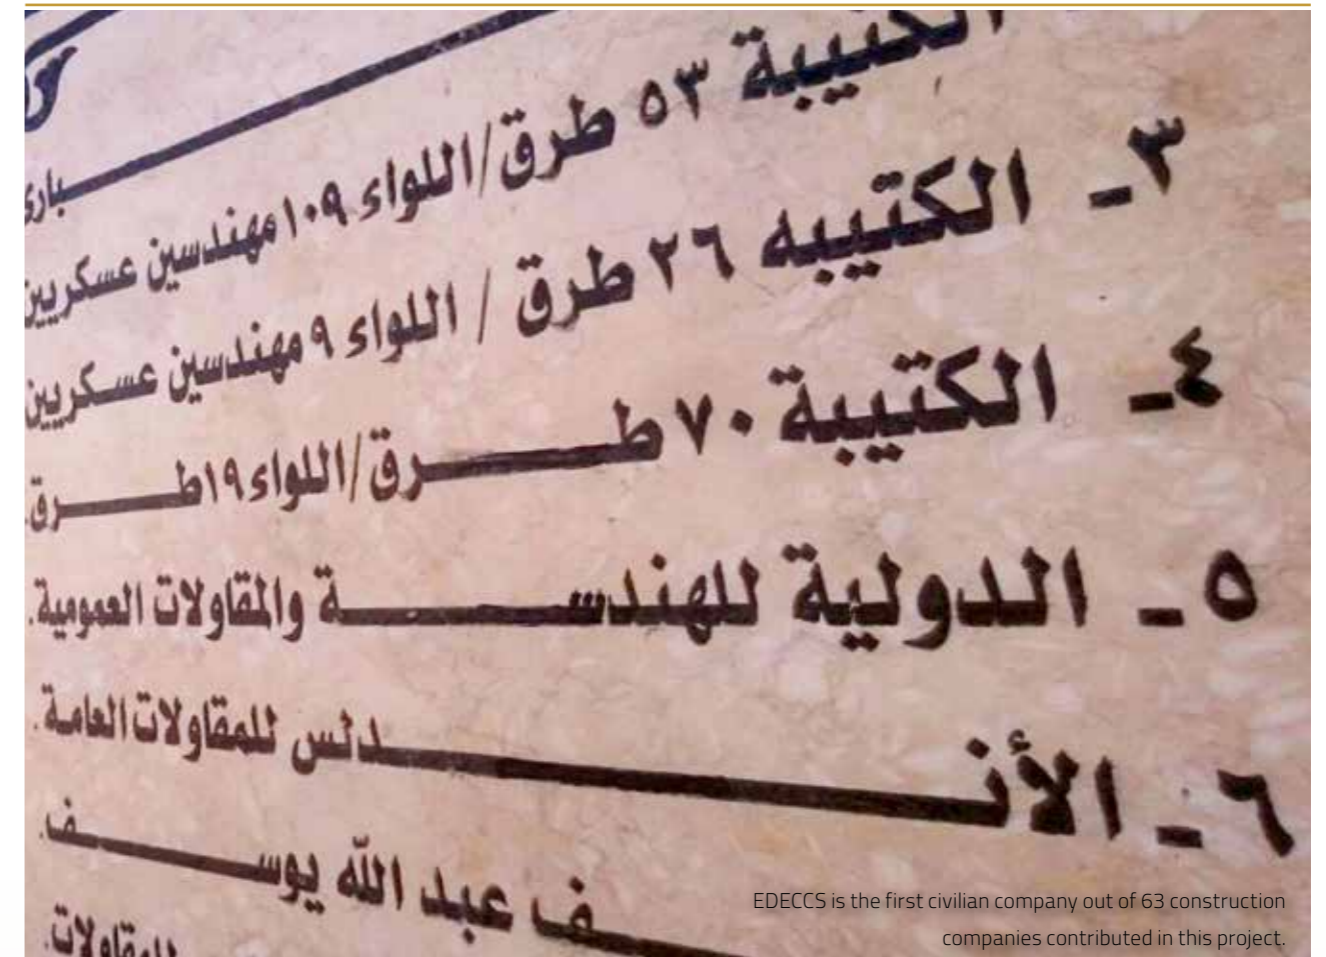 الكتيبة ٥٣ طرق/اللواء ١٠٩ مهندسين عسكريين
٣ـ الكتيبه ٢٦ طرق / اللواء ٩ مهندسين عسكريين
٤ـ الكتيبة ٧٠ طـــرق/اللواء ١٩ طـــرق.
٥ـ الدولية للهندســـة والمقاولات العمومية.
٦ـ الأنـــدلس للمقاولات العامة.
ف عبد الله يوســـف.
للمقاولات.
EDECCS is the first civilian company out of 63 construction
companies contributed in this project.